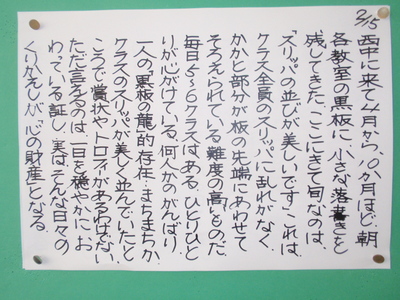 2/15
西中に来て4月から10ヶ月ほど、朝
各教室の黒板に、小さな落書きを
残してきた。ここにきて旬なのは、
「スリッパの並びが美しいです」これは、
クラス全員のスリッパに乱れがなく、
かかと部分が板の先端にあわせて
そろえられている難度の高いものだ。
毎日5~6クラスはある。ひとりひと
りが心がけている、何人かのがんばり、
一人の「黒板の龍的」存在…まちまちか。
クラスのスリッパが美しく並んでいたと
こうで賞状やトロフィがあるわけでない。
ただ言えるのは、一日を穏やかに、お
わっている証し。実は、そんな日々の
くりかえしが、「心の財産」となる。